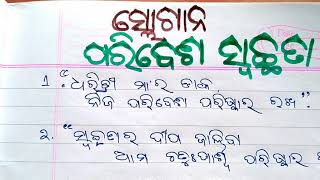 ସ୍ଲୋଗାନ
ପରିବେଶ ସ୍ୱଚ୍ଛତା
୧. "ଧରିତ୍ରୀ ମା'ର ଡାକ,
ନିଜ ପରିବେଶ ପରିଷ୍କାର ରଖ".
୨. "ସ୍ୱଚ୍ଛତାର ଦୀପ ଜାଳିବା
ଆମ ଚତୁଃପାର୍ଶ୍ୱ ପରିଷ୍କାର